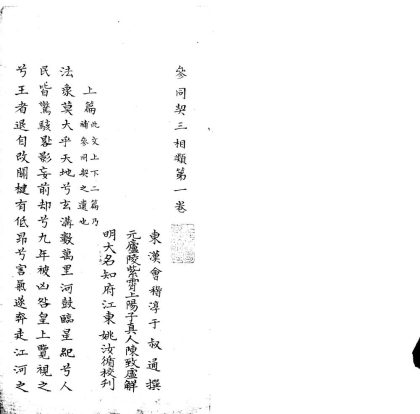 參同契三相類第一卷
東漢會稽淳于叔通撰
元廬陵紫霄上陽子真人陳致虛解
明大名知府江東姚汝循校刋
上篇 此文上下二篇乃補參同契之遺也
法象莫大乎天地兮玄溝數萬里河鼓臨星紀兮人
民皆驚駭晷影妄前却兮九年被凶咎皇上覽視之
兮王者退自改關楗有低昂兮害氣遂奔走江河之